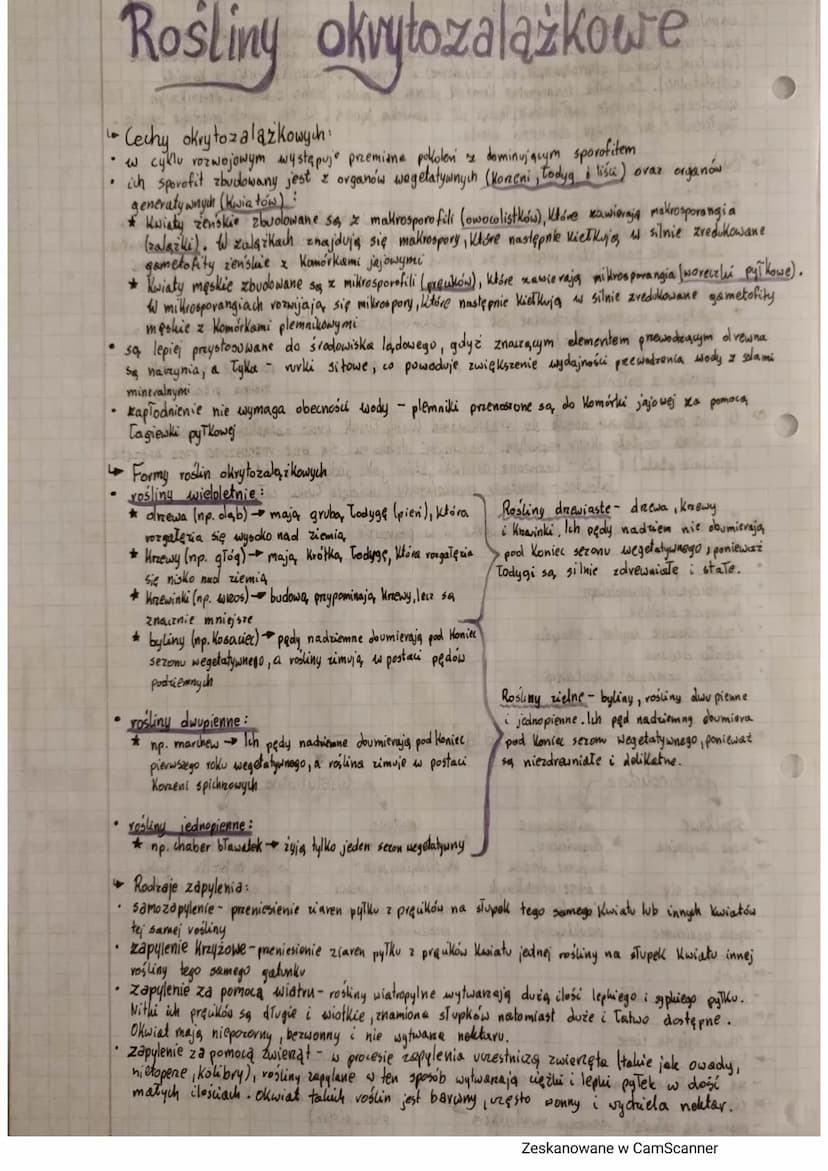 Rośliny okrytozalążkowe
↳ Cechy okrytozalążkowych:
• w cyklu rozwojowym występuje przemiana pokoleń z dominującym sporofitem
• ich sporofit zbudowany jest z organów wegetatywnych (korzeni, łodyg i liści) oraz organów
generatywnych (kwiatów):
★ Kwiaty żeńskie zbudowane są z makrosporofili (owocolistków), które zawierają makrosporangia
(zalążki). W zalążkach znajdują się makrospory, które następnie kiełkują w silnie zredukowane
gametofity żeńskie z komórkami jajowymi
★ Kwiaty męskie zbudowane są z mikrosporofili (pręcików), które zawierają mikrosporangia (woreczki pyłkowe).
W mikrosporangiach rozwijają się mikrospory, które następnie kiełkują w silnie zredukowane gametofity
męskie z komórkami plemnikowymi
• są lepiej przystosowane do środowiska lądowego, gdyż znaczącym elementem przewodzącym drewna
są naczynia, a łyka - rurki sitowe, co powoduje zwiększenie wydajności przewodzenia wody z solami
mineralnymi
• zapłodnienie nie wymaga obecności wody - plemniki przenoszone są do komórki jajowej za pomocą
łagiewki pyłkowej
↳ Formy roślin okrytozalążkowych
• rośliny wieloletnie:
★ drzewa (np. dąb) → mają grubą łodygę (pień), która
rozgałęzia się wysoko nad ziemią
★ krzewy (np. głóg) → mają krótką łodygę, która rozgałęzia
się nisko nad ziemią
★ krzewinki (np. wrzos) → budową przypominają krzewy, lecz są
znacznie mniejsze
★ byliny (np. kosaciec) → pędy nadziemne obumierają pod koniec
sezonu wegetatywnego, a rośliny zimują w postaci pędów
podziemnych
Rośliny drzewiaste - drzewa, krzewy
i krzewinki. Ich pędy nadziem nie obumierają
pod koniec sezonu wegetatywnego, ponieważ
łodygi są silnie zdrewniałe i stałe.
• rośliny dwupienne:
★ np. marchew → Ich pędy nadziemne obumierają pod koniec
pierwszego roku wegetatywnego, a roślina zimuje w postaci
korzeni spichrzowych
Rośliny zielne - byliny, rośliny dwupienne
i jednopienne. Ich pęd nadziemny obumiera
pod koniec sezonu wegetatywnego, ponieważ
są niezdrewniałe i delikatne.
• rośliny jednopienne:
★ np. chaber bławatek → żyją tylko jeden sezon wegetatywny
↳ Rodzaje zapylenia:
• samozapylenie - przeniesienie ziaren pyłku z pręcików na słupek tego samego kwiatu lub innych kwiatów
tej samej rośliny
• zapylenie krzyżowe - przeniesienie ziaren pyłku z pręcików kwiatu jednej rośliny na słupek kwiatu innej
rośliny tego samego gatunku
• zapylenie za pomocą wiatru - rośliny wiatropylne wytwarzają dużą ilość lepkiego i sypkiego pyłku.
Nitki ich pręcików są długie i wiotkie, znamiona słupków natomiast duże i łatwo dostępne.
Okwiat mają niepozorny, bezwonny i nie wytwarza nektaru.
• zapylenie za pomocą zwierząt - w procesie zapylenia uczestniczą zwierzęta (takie jak owady,
nietoperze, kolibry), rośliny zapylane w ten sposób wytwarzają ciężki i lepki pyłek w dość
małych ilościach. Okwiat takich roślin jest barwny, często wonny i wydziela nektar.
Zeskanowane w CamScanner